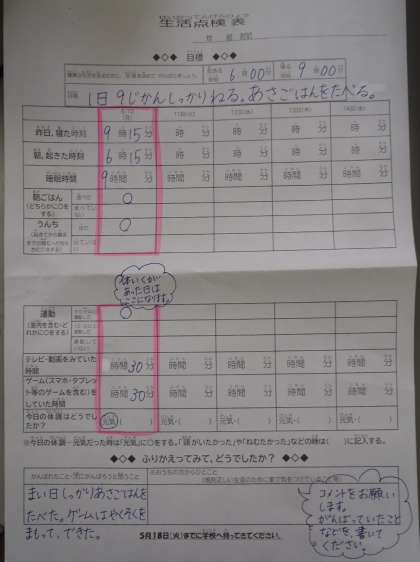 生活点検表
◆◇◆ 目標 ◆◇◆
6時00分 9時00分
1日9じかんしっかりねる。あさごはんをたべる。
昨日、寝た時刻 9時15分 時 分 時 分 時 分 時 分
朝、起きた時刻 6時15分 時 分 時 分 時 分 時 分
睡眠時間 9時間 分 時間 分 時間 分 時間 分 時間 分
朝ごはん ○
(どちらかに○をする)
うんち ○
体いくがあった日はここになります。
運動 ○
テレビ・動画をみていた時間 時間30分 時間 分 時間 分 時間 分 時間 分
ゲーム(スマホ・タブレット等のゲームを含む)をしていた時間 時間30分 時間 分 時間 分 時間 分 時間 分
今日の体調はどうでしたか? 元気・( ) 元気・( ) 元気・( ) 元気・( ) 元気・( )
※今日の体調…元気だった時は「元気」に○をする。「頭がいたかった」や「ねむたかった」などの時は( )に記入する。
◆◇◆ ふりかえってみて、どうでしたか? ◆◇◆
がんばれたこと・次にがんばろうと思うこと
まい日しっかりあさごはんを
たべた。ゲームはやくそくを
まもって、できた。
コメントをお願い
します。
がんばっていたこと
などを、書いて
ください。
5月18日(火)までに学校へ持ってきてください。